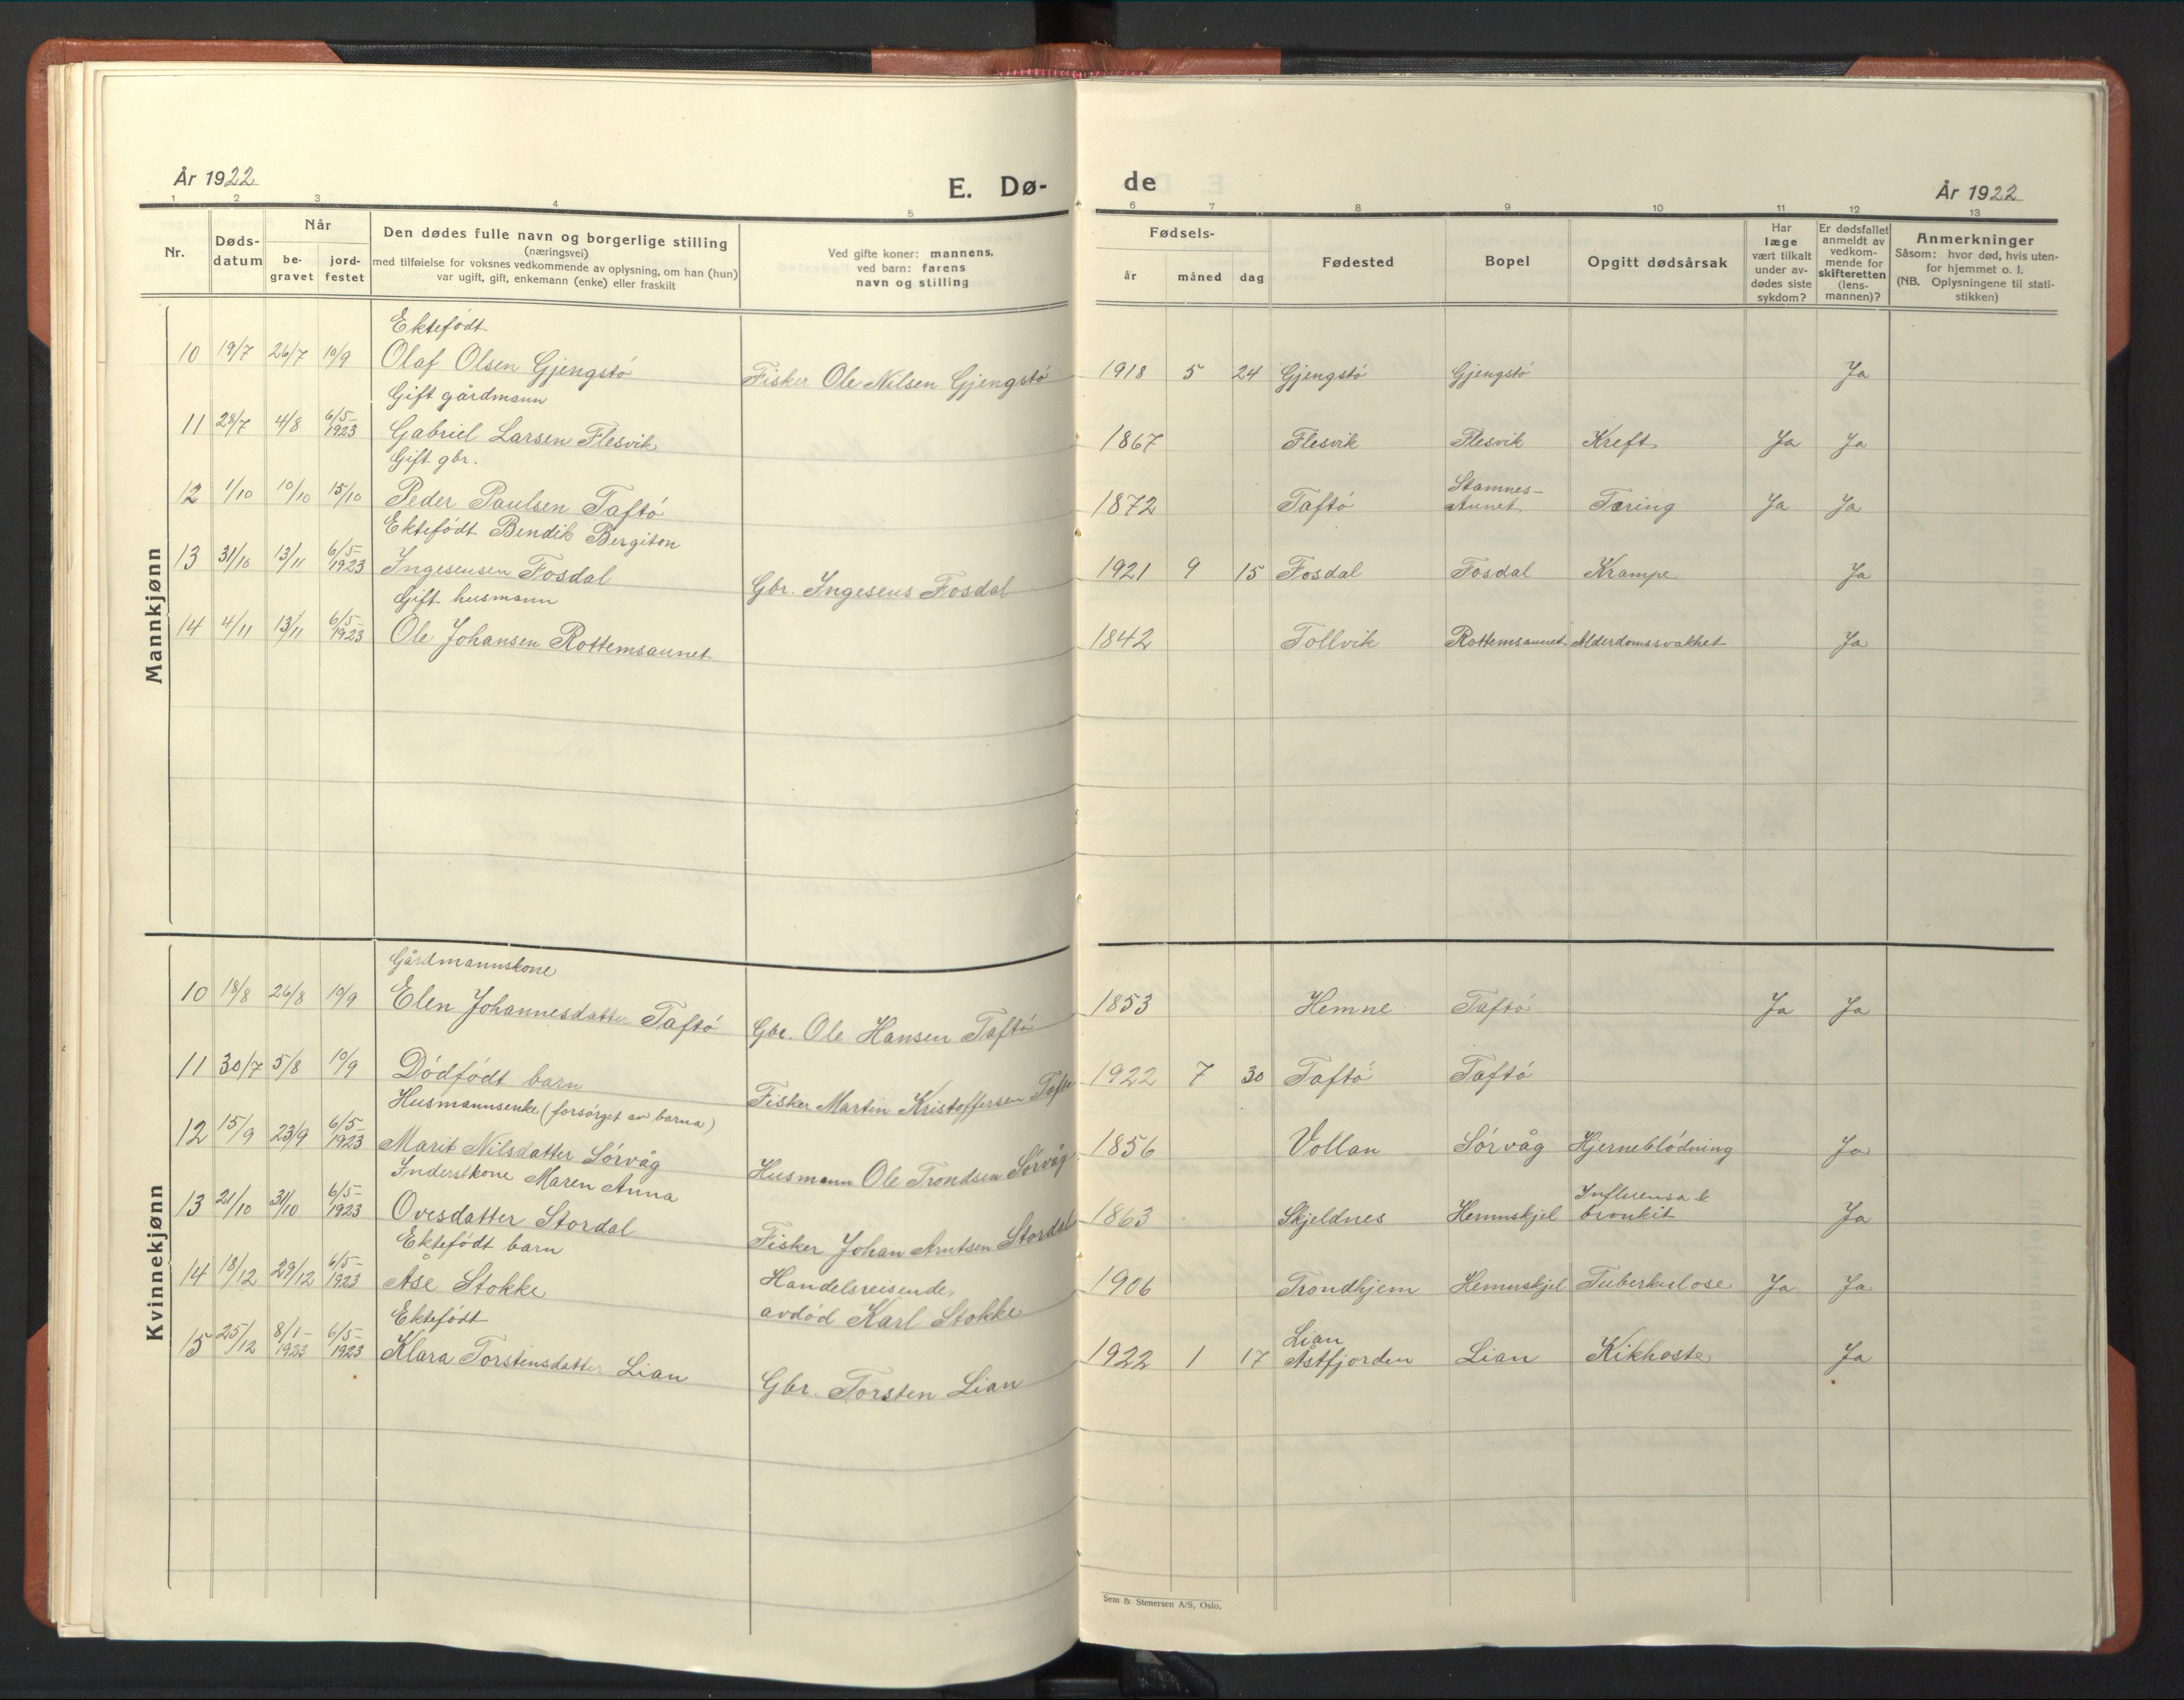 År 1922
E. Dø-
1 2 3 4 5
Nr.
Døds-
datum
Når
be-
gravet
jord-
festet
Den dødes fulle navn og borgerlige stilling
(næringsvei)
med tilføielse for voksnes vedkommende av oplysning, om han (hun)
var ugift, gift, enkemann (enke) eller fraskilt
Ved gifte koner: mannens,
ved barn: farens
navn og stilling
Mannkjønn
Ektefødt
10 19/7 26/7 10/9 Olaf Olsen Gjengstö Fisker Ole Nilsen Gjengstö
Gift gårdmann
11 28/7 4/8 6/5-1923 Gabriel Larsen Flesvik
Gift gbr.
12 1/10 10/10 15/10 Peder Paulsen Taftö
Ektefødt Bendik Bergiton
13 31/10 13/11 6/5-1923 Ingesensen Fosdal Gbr. Ingeseus Fosdal
Gift husmann
14 4/11 13/11 6/5-1923 Ole Johansen Rottemsaunet
Kvinnekjønn
Gårdmannskone
10 18/8 26/8 10/9 Elen Johannesdatter Taftö Gbr. Ole Hansen Taftö
11 30/7 5/8 10/9 Dödfödt barn Fisker Martin Kristoffersen Taftö
Husmannsenke (forsörget av barna)
12 15/9 23/9 6/5-1923 Marit Nilsdatter Sörvåg Husmann Ole Trondsen Sörvåg
Inderstkone Maren Anna
13 21/10 31/10 6/5-1923 Ovesdatter Stordal Fisker Johan Arntsen Stordal
Ektefödt barn
14 18/12 29/12 6/5-1923 Åse Stokke Handelsreisende,
avdöd Karl Stokke
Ektefödt
15 25/12 8/1-1923 6/5-1923 Klara Torstensdatter Lian Gbr. Torsten Lian
de
År 1922
6 7 8 9 10 11 12 13
Fødsels-
år måned dag
Fødested
Bopel
Opgitt dødsårsak
Har
læge
vært tilkalt
under av-
dødes siste
sykdom?
Er dødsfallet
anmeldt av
vedkom-
mende for
skifteretten
(lens-
mannen)?
Anmerkninger
Såsom: hvor død, hvis uten-
for hjemmet o. l.
(NB. Oplysningene til stati-
stikken)
1918 5 24 Gjengstö Gjengstö Ja
1867 Flesvik Flesvik Kreft Ja Ja
1872 Taftö Stamnes-
Aunet Tæring Ja Ja
1921 9 15 Fosdal Fosdal Krampe Ja
1842 Tollvik Rottemsaunet Alderdomssvakhet Ja
1853 Hemne Taftö Ja Ja
1922 7 30 Taftö Taftö
1856 Vollan Sörvåg Hjerneblödning Ja
1863 Skjeldnes Hemnskjel Influensa &
bronkit Ja
1906 Trondhjem Hemnskjel Tuberkulose Ja Ja
1922 1 17 Lian
Åstfjorden Lian Kikhoste Ja
Sem & Stenersen A/S, Oslo.